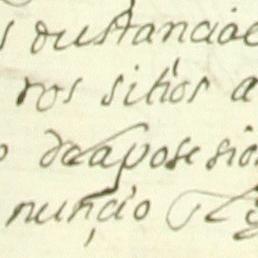 s sustancias
ros sitios a
o deaposesio
nunçio